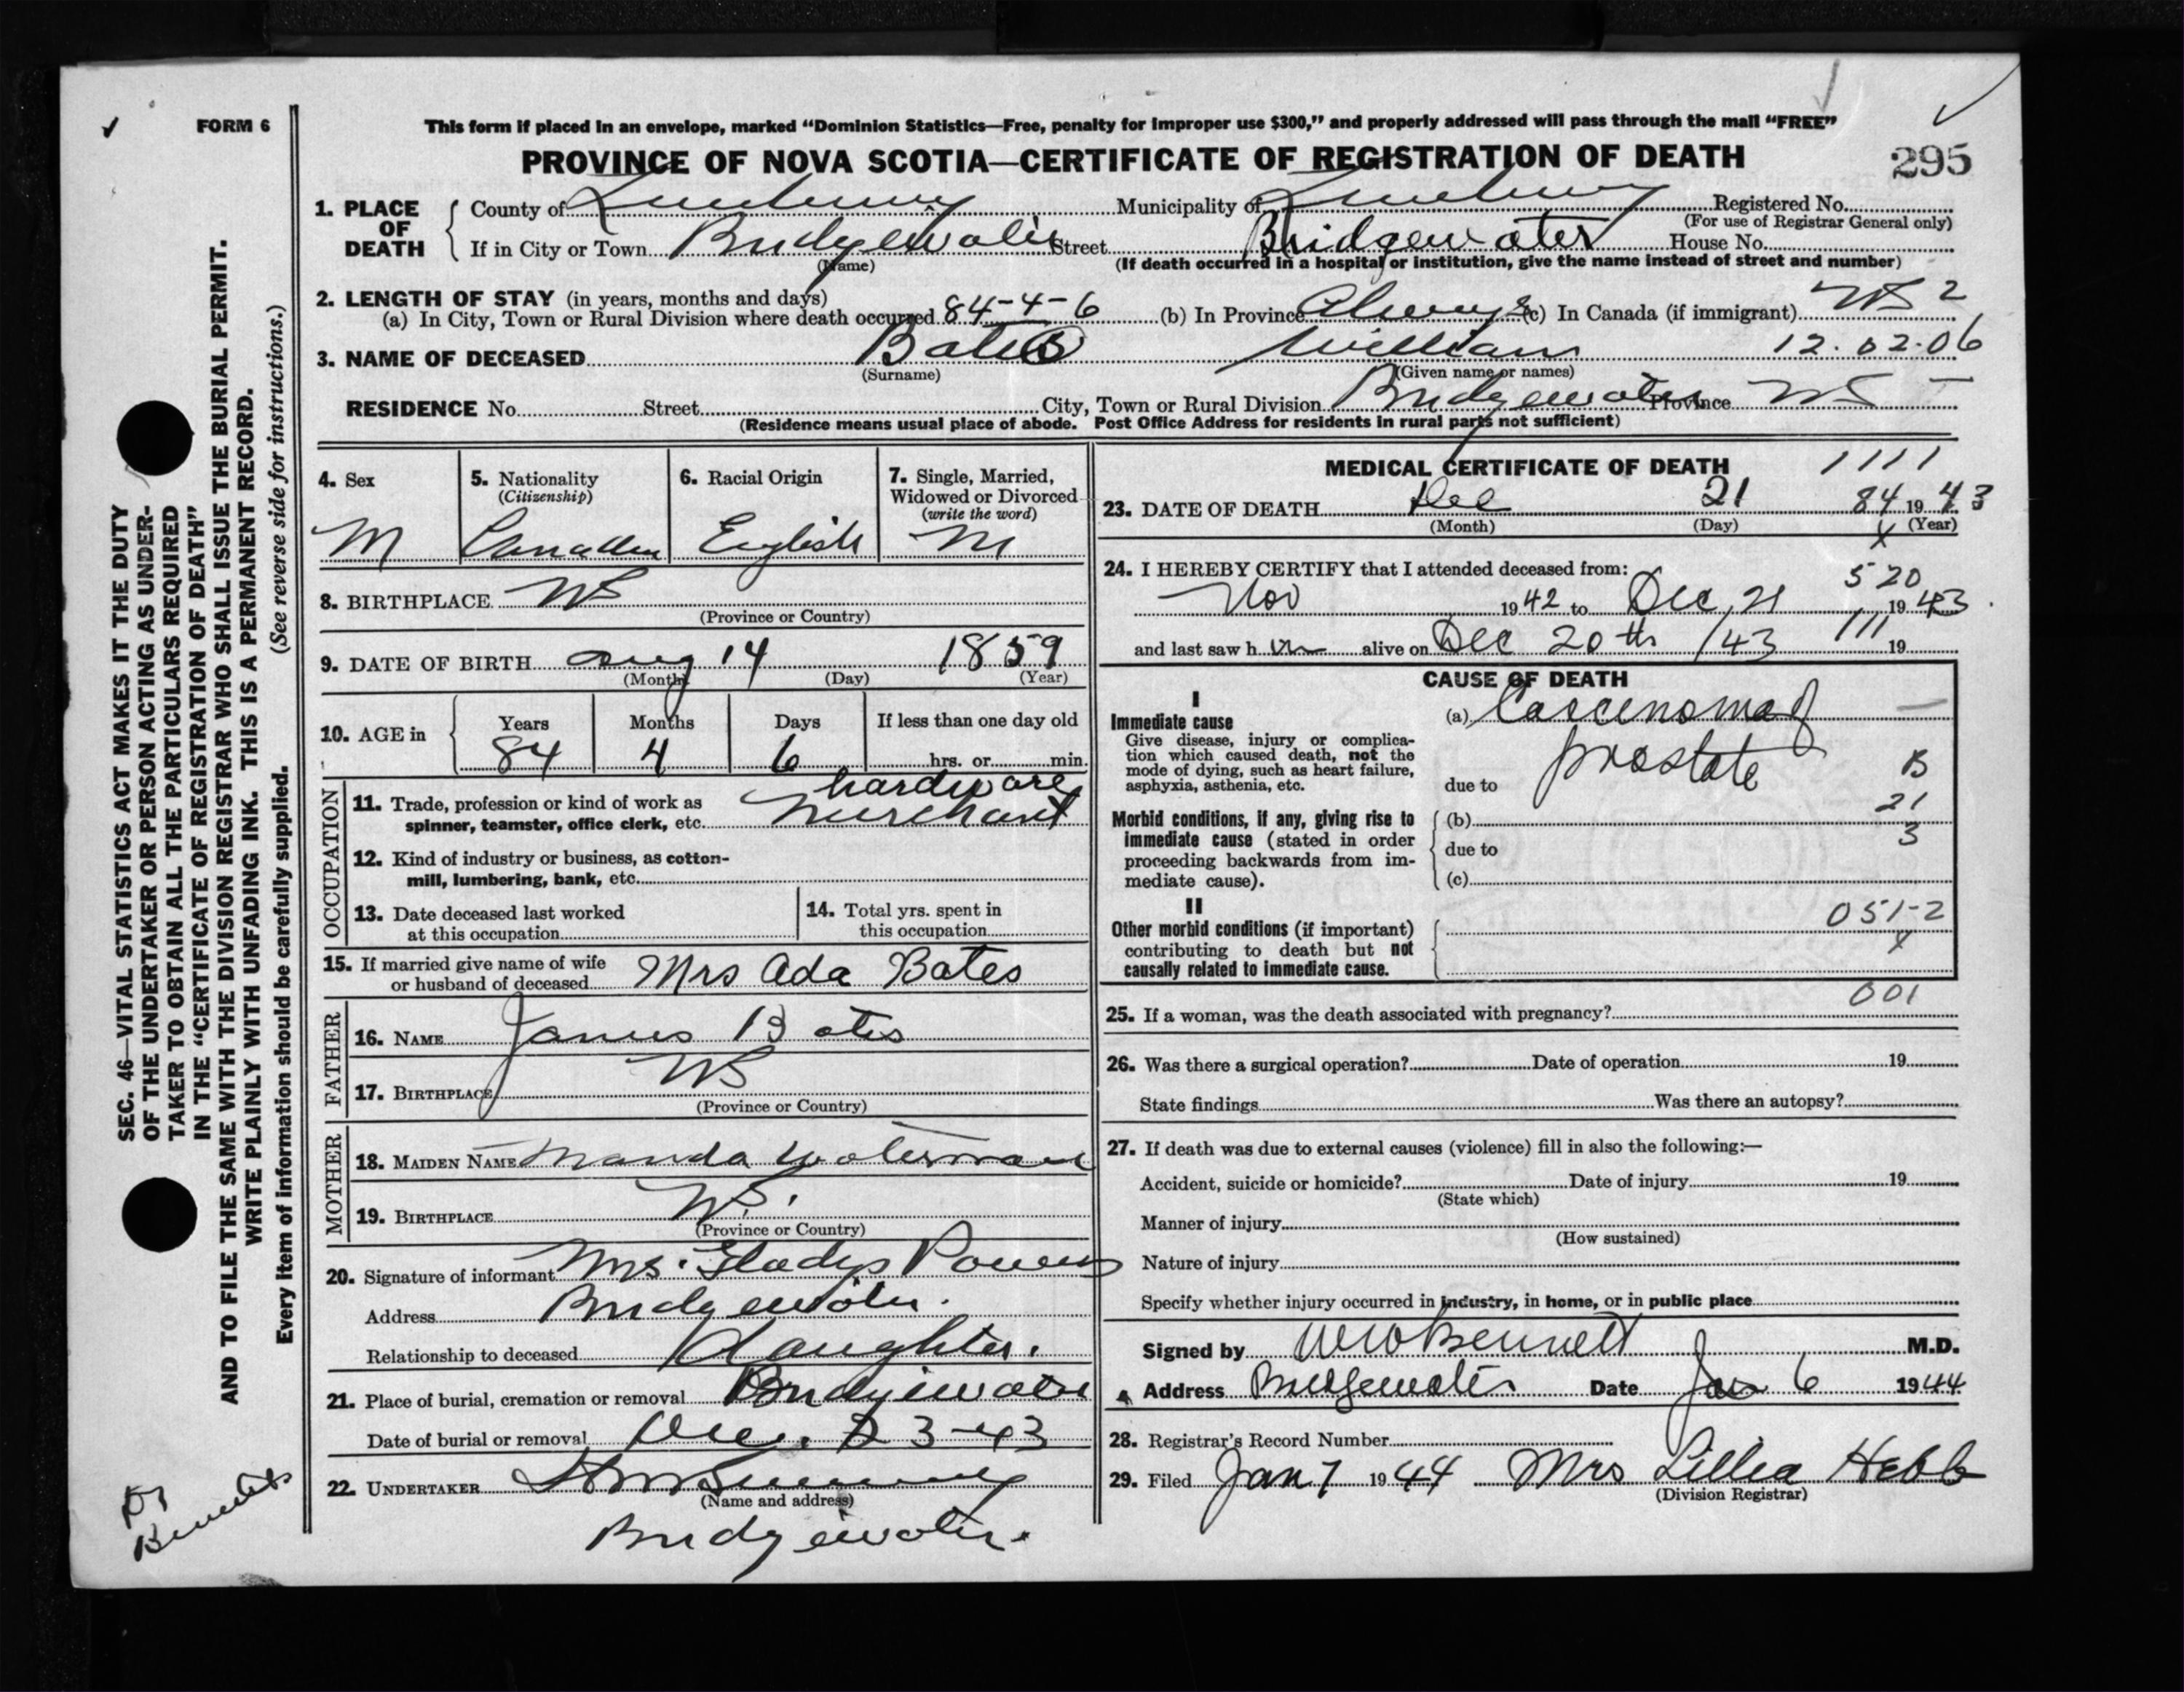 FORM 6
This form if placed in an envelope, marked “Dominion Statistics—Free, penalty for improper use $300,” and properly addressed will pass through the mail “FREE”
PROVINCE OF NOVA SCOTIA—CERTIFICATE OF REGISTRATION OF DEATH
295
1. PLACE OF DEATH
County of Lunenburg Municipality of Lunenburg Registered No.
(For use of Registrar General only)
If in City or Town Bridgewater Street Bridgewater House No.
(Name) (If death occurred in a hospital or institution, give the name instead of street and number)
2. LENGTH OF STAY (in years, months and days)
(a) In City, Town or Rural Division where death occurred 84-4-6 (b) In Province Always (c) In Canada (if immigrant) NS 2
3. NAME OF DECEASED Bates William 12.02.06
(Surname) (Given name or names)
RESIDENCE No. Street City, Town or Rural Division Bridgewater Province NS
(Residence means usual place of abode. Post Office Address for residents in rural parts not sufficient)
4. Sex M
5. Nationality
(Citizenship)
Canadian
6. Racial Origin
English
7. Single, Married,
Widowed or Divorced
(write the word)
M
8. BIRTHPLACE NS
(Province or Country)
9. DATE OF BIRTH Aug 14 1859
(Month) (Day) (Year)
10. AGE in Years Months Days If less than one day old
84 4 6 hrs. or min.
OCCUPATION
hardware
11. Trade, profession or kind of work as
spinner, teamster, office clerk, etc. merchant
12. Kind of industry or business, as cotton-
mill, lumbering, bank, etc.
13. Date deceased last worked
at this occupation
14. Total yrs. spent in
this occupation
15. If married give name of wife
or husband of deceased Mrs Ada Bates
FATHER
16. NAME James Bates
17. BIRTHPLACE NS
(Province or Country)
MOTHER
18. MAIDEN NAME Manda Waterman
19. BIRTHPLACE N.S.
(Province or Country)
20. Signature of informant Mrs. Gladys Powers
Address Bridgewater.
Relationship to deceased daughter.
21. Place of burial, cremation or removal Bridgewater
Date of burial or removal Dec. 23-43
22. UNDERTAKER
(Name and address)
Bridgewater.
MEDICAL CERTIFICATE OF DEATH 1111
23. DATE OF DEATH Dec 21 84 1943
(Month) (Day) X (Year)
24. I HEREBY CERTIFY that I attended deceased from: 520
Nov 1942 to Dec, 21 1943
and last saw h im alive on Dec 20th /43 111 19
CAUSE OF DEATH
I
Immediate cause
Give disease, injury or complica-
tion which caused death, not the
mode of dying, such as heart failure,
asphyxia, asthenia, etc.
(a) Carcinoma of
prostate
due to
B
21
3
Morbid conditions, if any, giving rise to
immediate cause (stated in order
proceeding backwards from im-
mediate cause).
(b)
due to
(c)
II
Other morbid conditions (if important)
contributing to death but not
causally related to immediate cause.
051-2
X
001
25. If a woman, was the death associated with pregnancy?
26. Was there a surgical operation? Date of operation 19
State findings Was there an autopsy?
27. If death was due to external causes (violence) fill in also the following:—
Accident, suicide or homicide? Date of injury 19
(State which)
Manner of injury
(How sustained)
Nature of injury
Specify whether injury occurred in industry, in home, or in public place
Signed by Bennett M.D.
Address Bridgewater Date Jan 6 1944
28. Registrar's Record Number
29. Filed Jan 7 1944 Mrs Lillia Hebb
(Division Registrar)
SEC. 46—VITAL STATISTICS ACT MAKES IT THE DUTY
OF THE UNDERTAKER OR PERSON ACTING AS UNDER-
TAKER TO OBTAIN ALL THE PARTICULARS REQUIRED
IN THE “CERTIFICATE OF REGISTRATION OF DEATH”
AND TO FILE THE SAME WITH THE DIVISION REGISTRAR WHO SHALL ISSUE THE BURIAL PERMIT.
WRITE PLAINLY WITH UNFADING INK. THIS IS A PERMANENT RECORD.
Every item of information should be carefully supplied. (See reverse side for instructions.)
Dr
Bennett